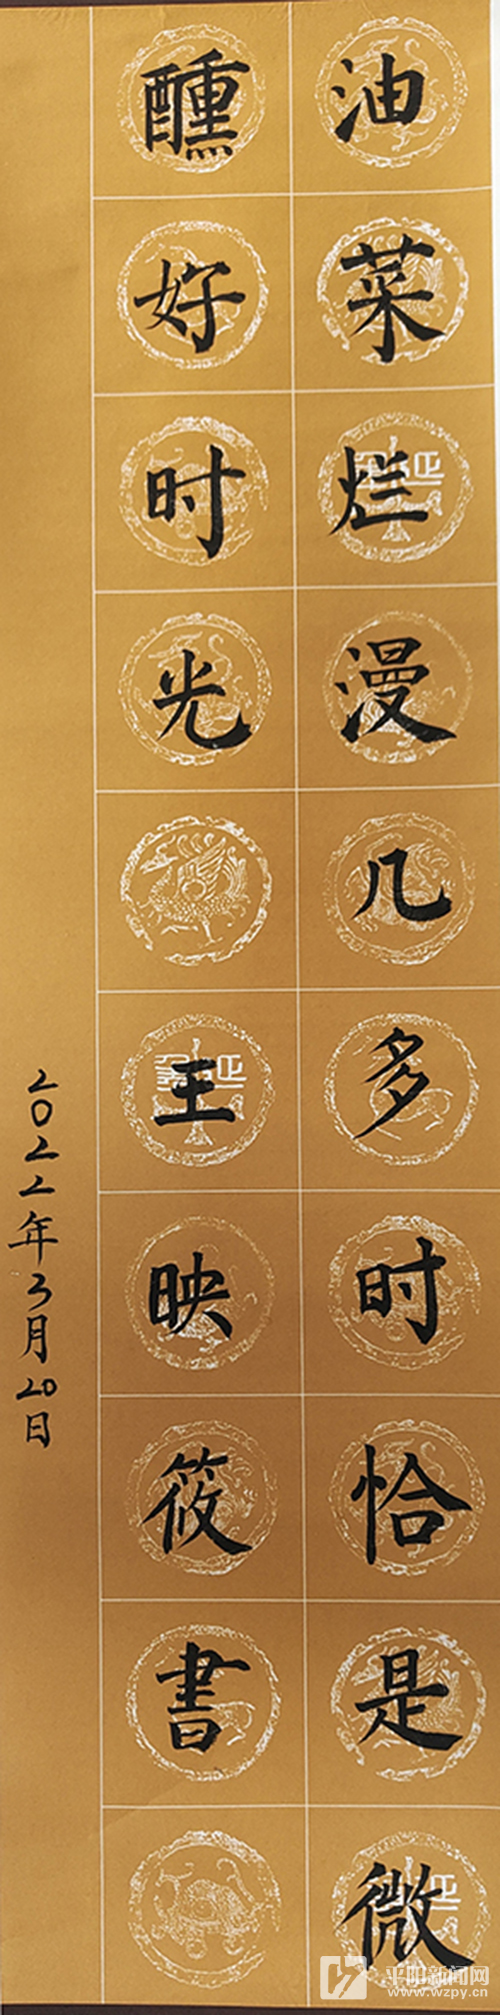 油菜烂漫几多时恰是微
醺好时光
王映筱書
2022年3月20日
平阳新闻网
www.wzpy.cn